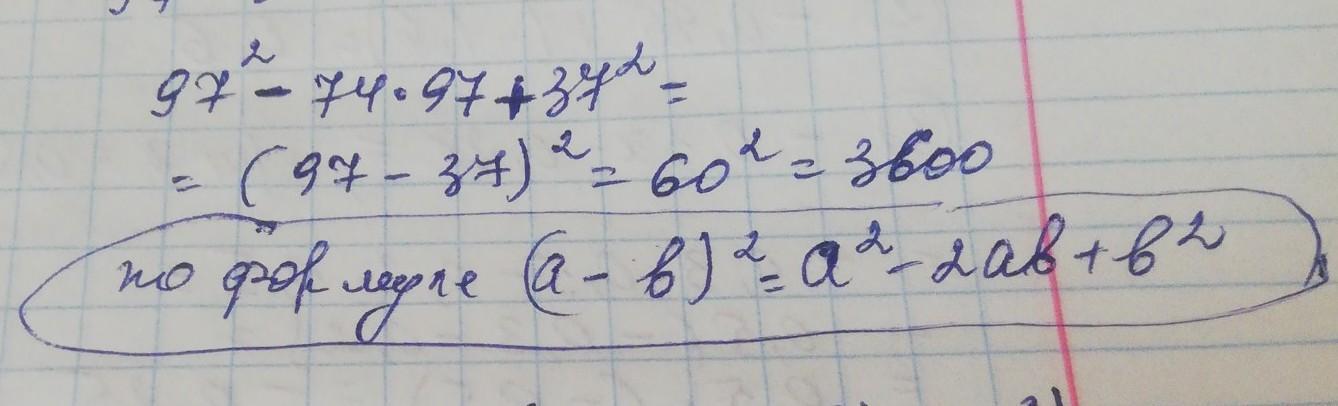 97² - 74·97 + 37² =
= (97 - 37)² = 60² = 3600
по формуле (a - b)² = a² - 2ab + b²